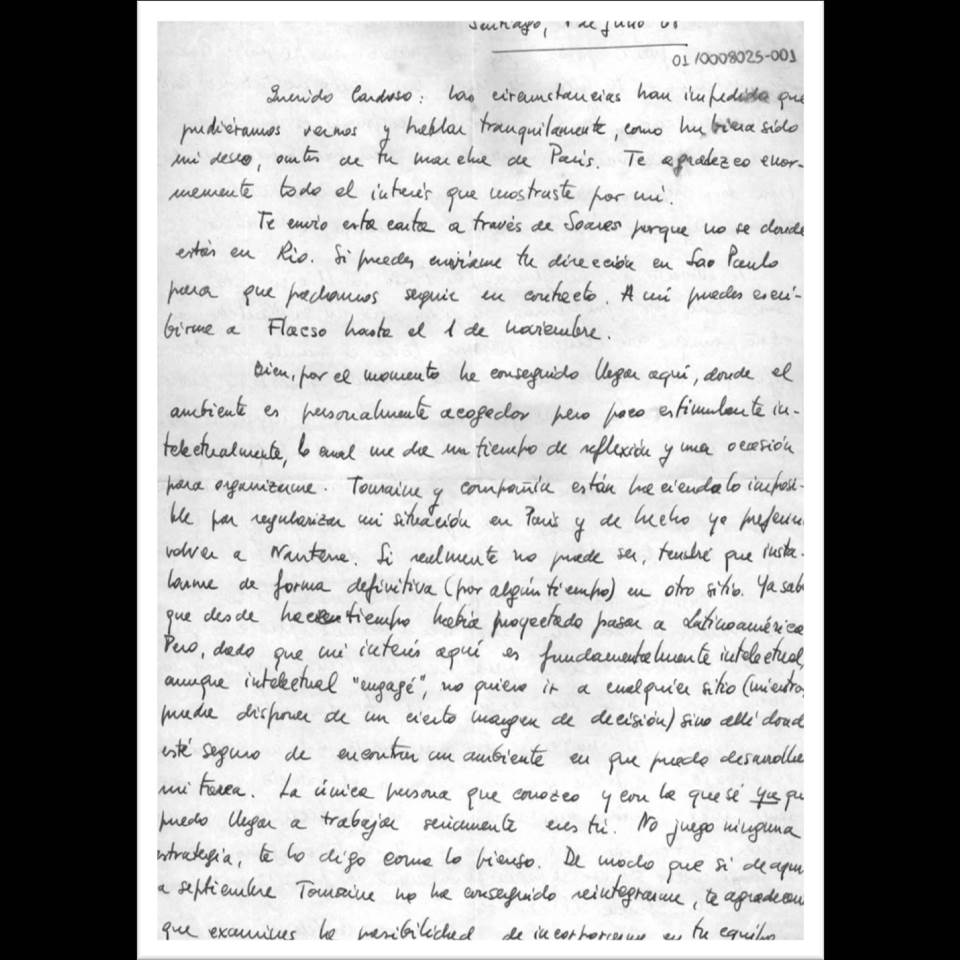 Santiago, 1 de julio 68
01/0008025-001
Querido Cardoso: las circunstancias han impedido que
pudiéramos vernos y hablar tranquilamente, como hubiera sido
mi deseo, antes de tu marcha de París. Te agradezco enor-
memente todo el interés que mostraste por mí.
Te envío esta carta a través de Soares porque no se donde
estás en Rio. Si puedes envíame tu dirección en Sao Paulo
para que podamos seguir en contacto. A mí puedes escri-
birme a Flacso hasta el 1 de noviembre.
Bien, por el momento he conseguido llegar aquí, donde el
ambiente es personalmente acogedor pero poco estimulante in-
telectualmente, lo cual me da un tiempo de reflexión y una ocasión
para organizarme. Touraine y compañía están haciendo lo imposi-
ble por regularizar mi situación en París y de hecho yo preferiría
volver a Nanterre. Si realmente no puede ser, tendré que insta-
larme de forma definitiva (por algún tiempo) en otro sitio. Ya sab
que desde hace tiempo había proyectado pasar a Latinoamérica
Pero, dado que mi interés aquí es fundamentalmente intelectual,
aunque intelectual "engagé", no quiero ir a cualquier sitio (mientras
pueda disponer de un cierto margen de decisión) sino allí donde
esté seguro de encontrar un ambiente en que pueda desarrollar
mi tarea. La única persona que conozco y con la que sé ya que
puedo llegar a trabajar seriamente eres tú. No juego ninguna
estrategia, te lo digo como lo pienso. De modo que si de aquí
a septiembre Touraine no ha conseguido reintegrarme, te agradecería
que examines la posibilidad de incorporarme en tu equipo